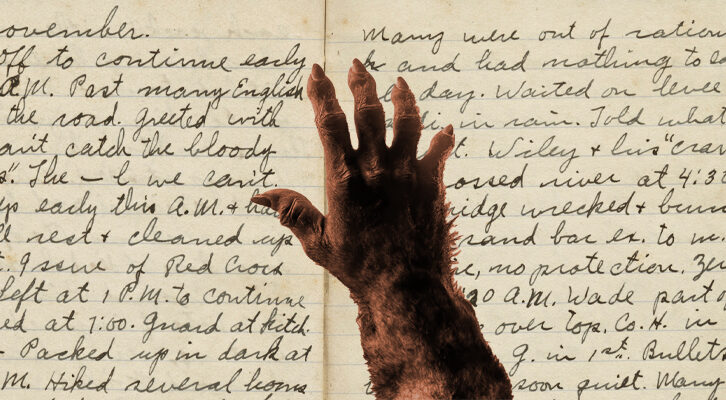 ovember.
off to continue early
A.M. Past many English
the road. Greeted with
an't catch the bloody
s". The — l we can't.
early this A.M. &
rest & cleaned up
. Issue of Red Cross
Left at 1 P.M. to continue
ed at 7:00. Guard at kitch.
- Packed up in dark at
M. Hiked several hours
Many were out of ration
k and had nothing to ea
day. Waited on levee
in rain. Told what
t. Wiley & his "crav
ossed river at 4:30
ridge wrecked & burn
sand bar ex. to m.
, no protection. Zer
30 A.M. Wade part
over top. Co. H. in
g. in 1st. Bullets
soon quiet. Many